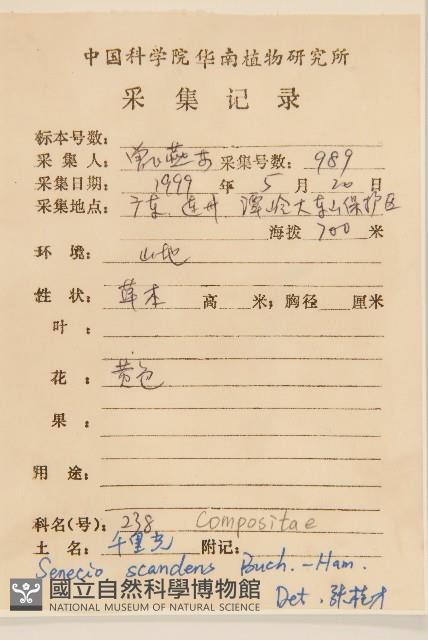 中国科学院华南植物研究所
采集记录
标本号数：
采集人：曾飞燕 采集号数：989
采集日期：1999年5月20日
采集地点：广东、连州 潭岭大东山保护区
海拨 700 米
环境：山地
性状：草本 高 米；胸径 厘米
叶：
花：黄色
果：
用途：
科名(号)：238 Compositae
土名：千里光 附记：
Senecio scandens Buch.-Ham.
Det. 张桂才
國立自然科學博物館
NATIONAL MUSEUM OF NATURAL SCIENCE